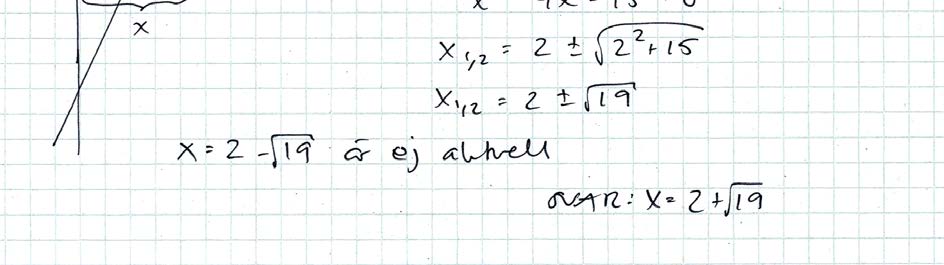 x
x₁,₂ = 2 ± √(2² + 15)
x₁,₂ = 2 ± √19
x = 2 - √19 är ej aktuell
SVAR: x = 2 + √19